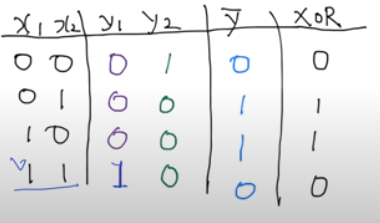 x₁ x₂ y₁ y₂ y̅ XOR
0 0 0 1 0 0
0 1 0 0 1 1
1 0 0 0 1 1
1 1 1 0 0 0